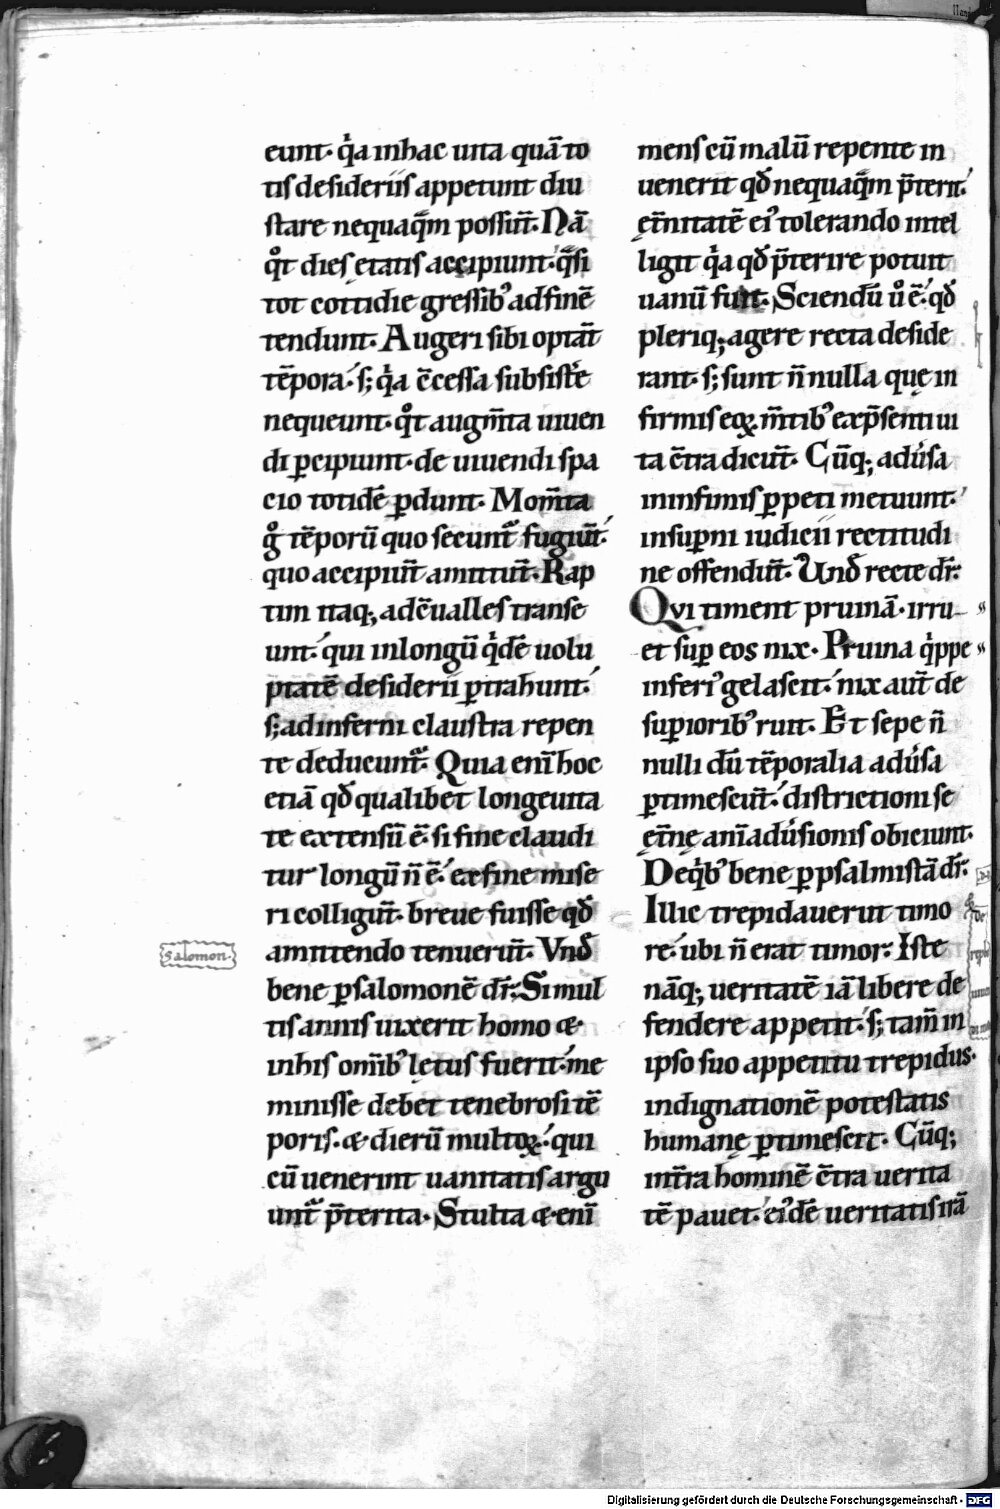 eunt· qͥa inhac uita quā to
tis desideriis appetunt diu
stare nequaq̄m possuнt̄· Nā
qͦt dies ętatis accipiunt· q̄si
tot cottidie gressib᷒ adfinē
tendunt· Augeri sibi optāt
tēpora· s; qͥa c̄cessa subsistͤe
nequeunt· qͦt augm̄ta uiuen
di ꝑcipiunt· de uiuendi spa
cio totidē ꝑdunt· Mom̄ta
gͦ tēporū quo secunt᷑ fugiūt·
quo accipiūt amittūt· Rap
tim itaq; adc̄ualles transe
unt· qui inlongū qͥdē uolu
ptatē desiderii ꝑtrahunt·
s; ad inferni claustra repen
te deducunt᷑· Quia enī hoc
etiā qđ qualibet longe uita
te extensū ē· si fine claudi
tur longū n̄ ē· ex fine mise
ri colligūt· breue fuisse qđ
amittendo tenuerūt· Vnđ
bene ꝑ salomonē dr̄· Si mul
tis annis uixerit homo &
inhis omīb᷒ lętus fuerit· me
minisse debet tenebrosi tē
poris· & dierū multoꝝ· qui
cū uenerint uanitatis argu
unt᷑ p̄terita· Stulta & enī
Salomon·
mens cū malū repente in
uenerit qđ nequaq̄m p̄terit·
ęt̄nitatē ei᷒ tolerando intel
ligit qͥa qđ p̄terire potuit
uanū fuit· Sciendū uͦ ē· qđ
pleriq; agere recta deside
rant· s; sunt n̄nulla que in
firmis eoꝝ m̄tib᷒ ex p̄senti ui
ta c̄tra dicūt· Cūq; adu͛sa
ininfimis ꝑpeti metuunt·
insuꝑni iudicii rectitudi
ne offendūt· Unđ recte dr̄·
Qui timent pruinā· irru
et suꝑ eos nix· Pruina qͥppe
inferi᷒ gelascit· nix aūt de
suꝑiorib᷒ ruit· Et sepe n̄
nulli dū tēporalia adu͛sa
ꝑtimescūt· districtioni se
ęt̄nę anīadu͛sionis obiciunt·
Deqͥb᷒ bene ꝑ psalmistā dr̄·
Illic trepidauerūt timo
re· ubi n̄ erat timor· Iste
nāq; ueritatē iā libere de
fendere appetit· s; tam̄ in
ipso suo appetitu trepidus·
indignationē potestatis
humanę ꝑtimescit· Cūq;
int̄ra hominē c̄tra uerita
tē pauet· ei᷒dē ueritatis irā
Digitalisierung gefördert durch die Deutsche Forschungsgemeinschaft - DFG